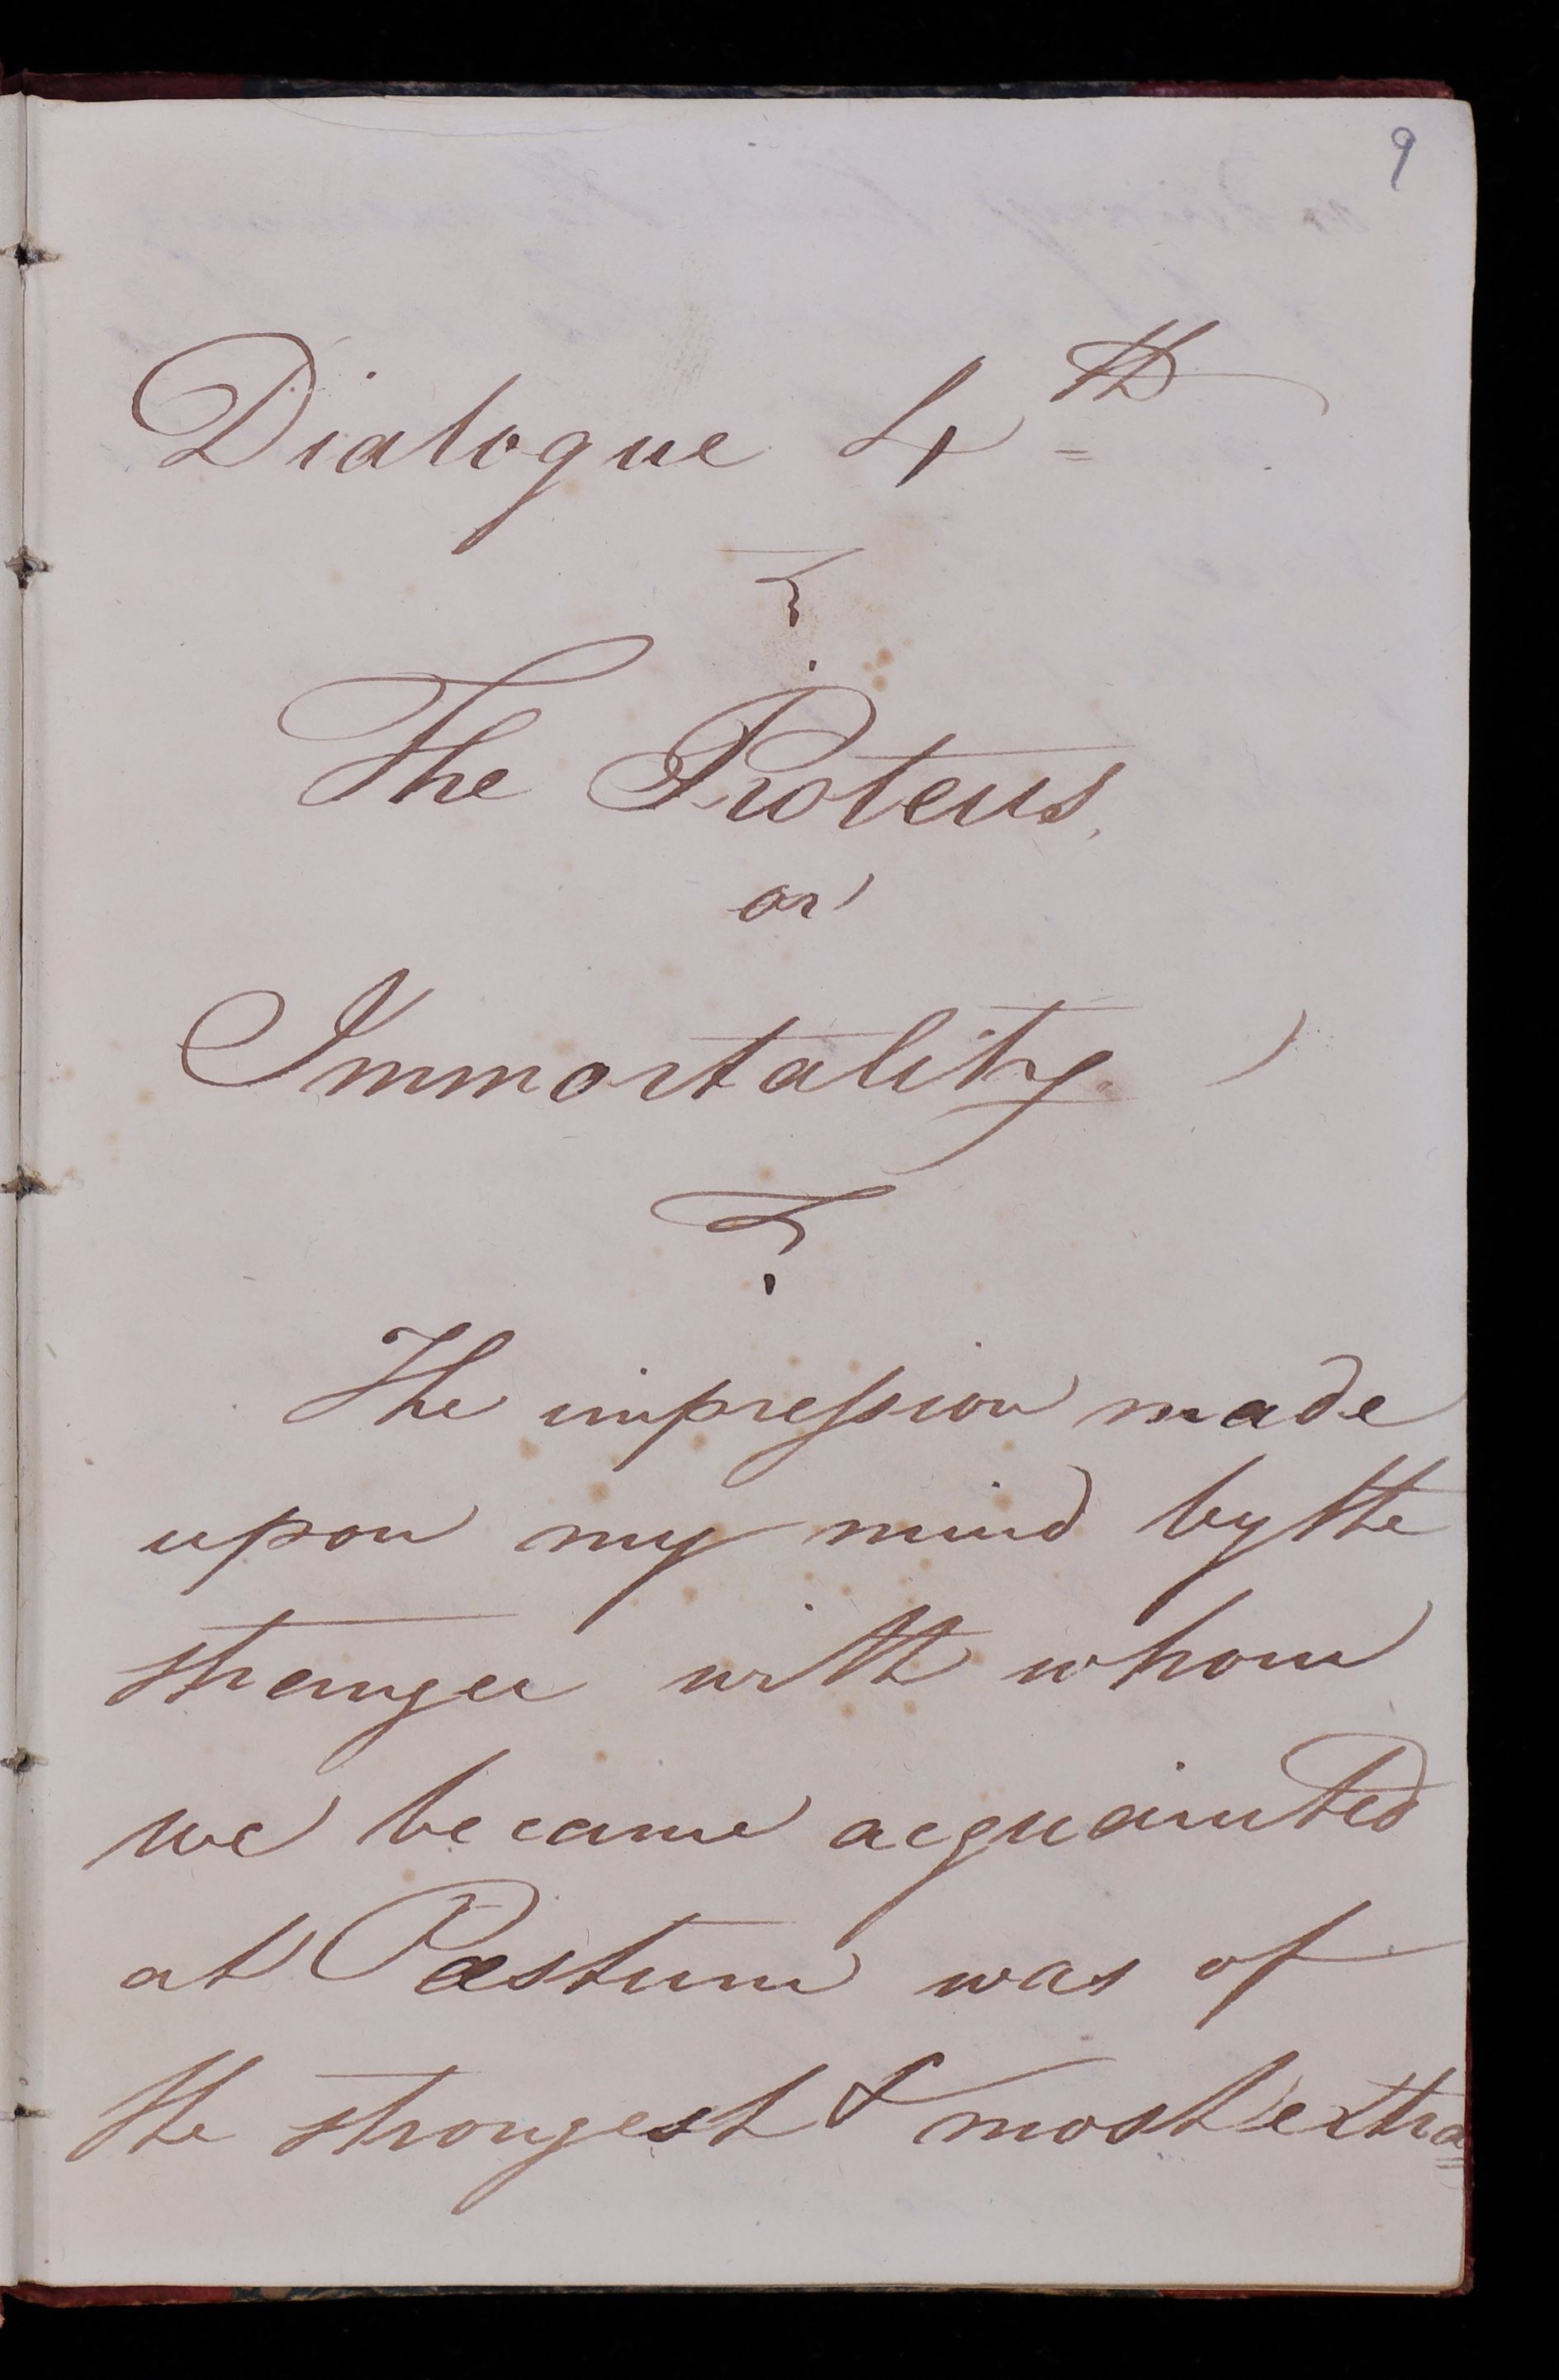 9
Dialogue 4th
The Proteus.
or
Immortality.
The impression made
upon my mind by the
stranger with whom
we became acquainted
at Pæstum was of
the strongest & most extra=